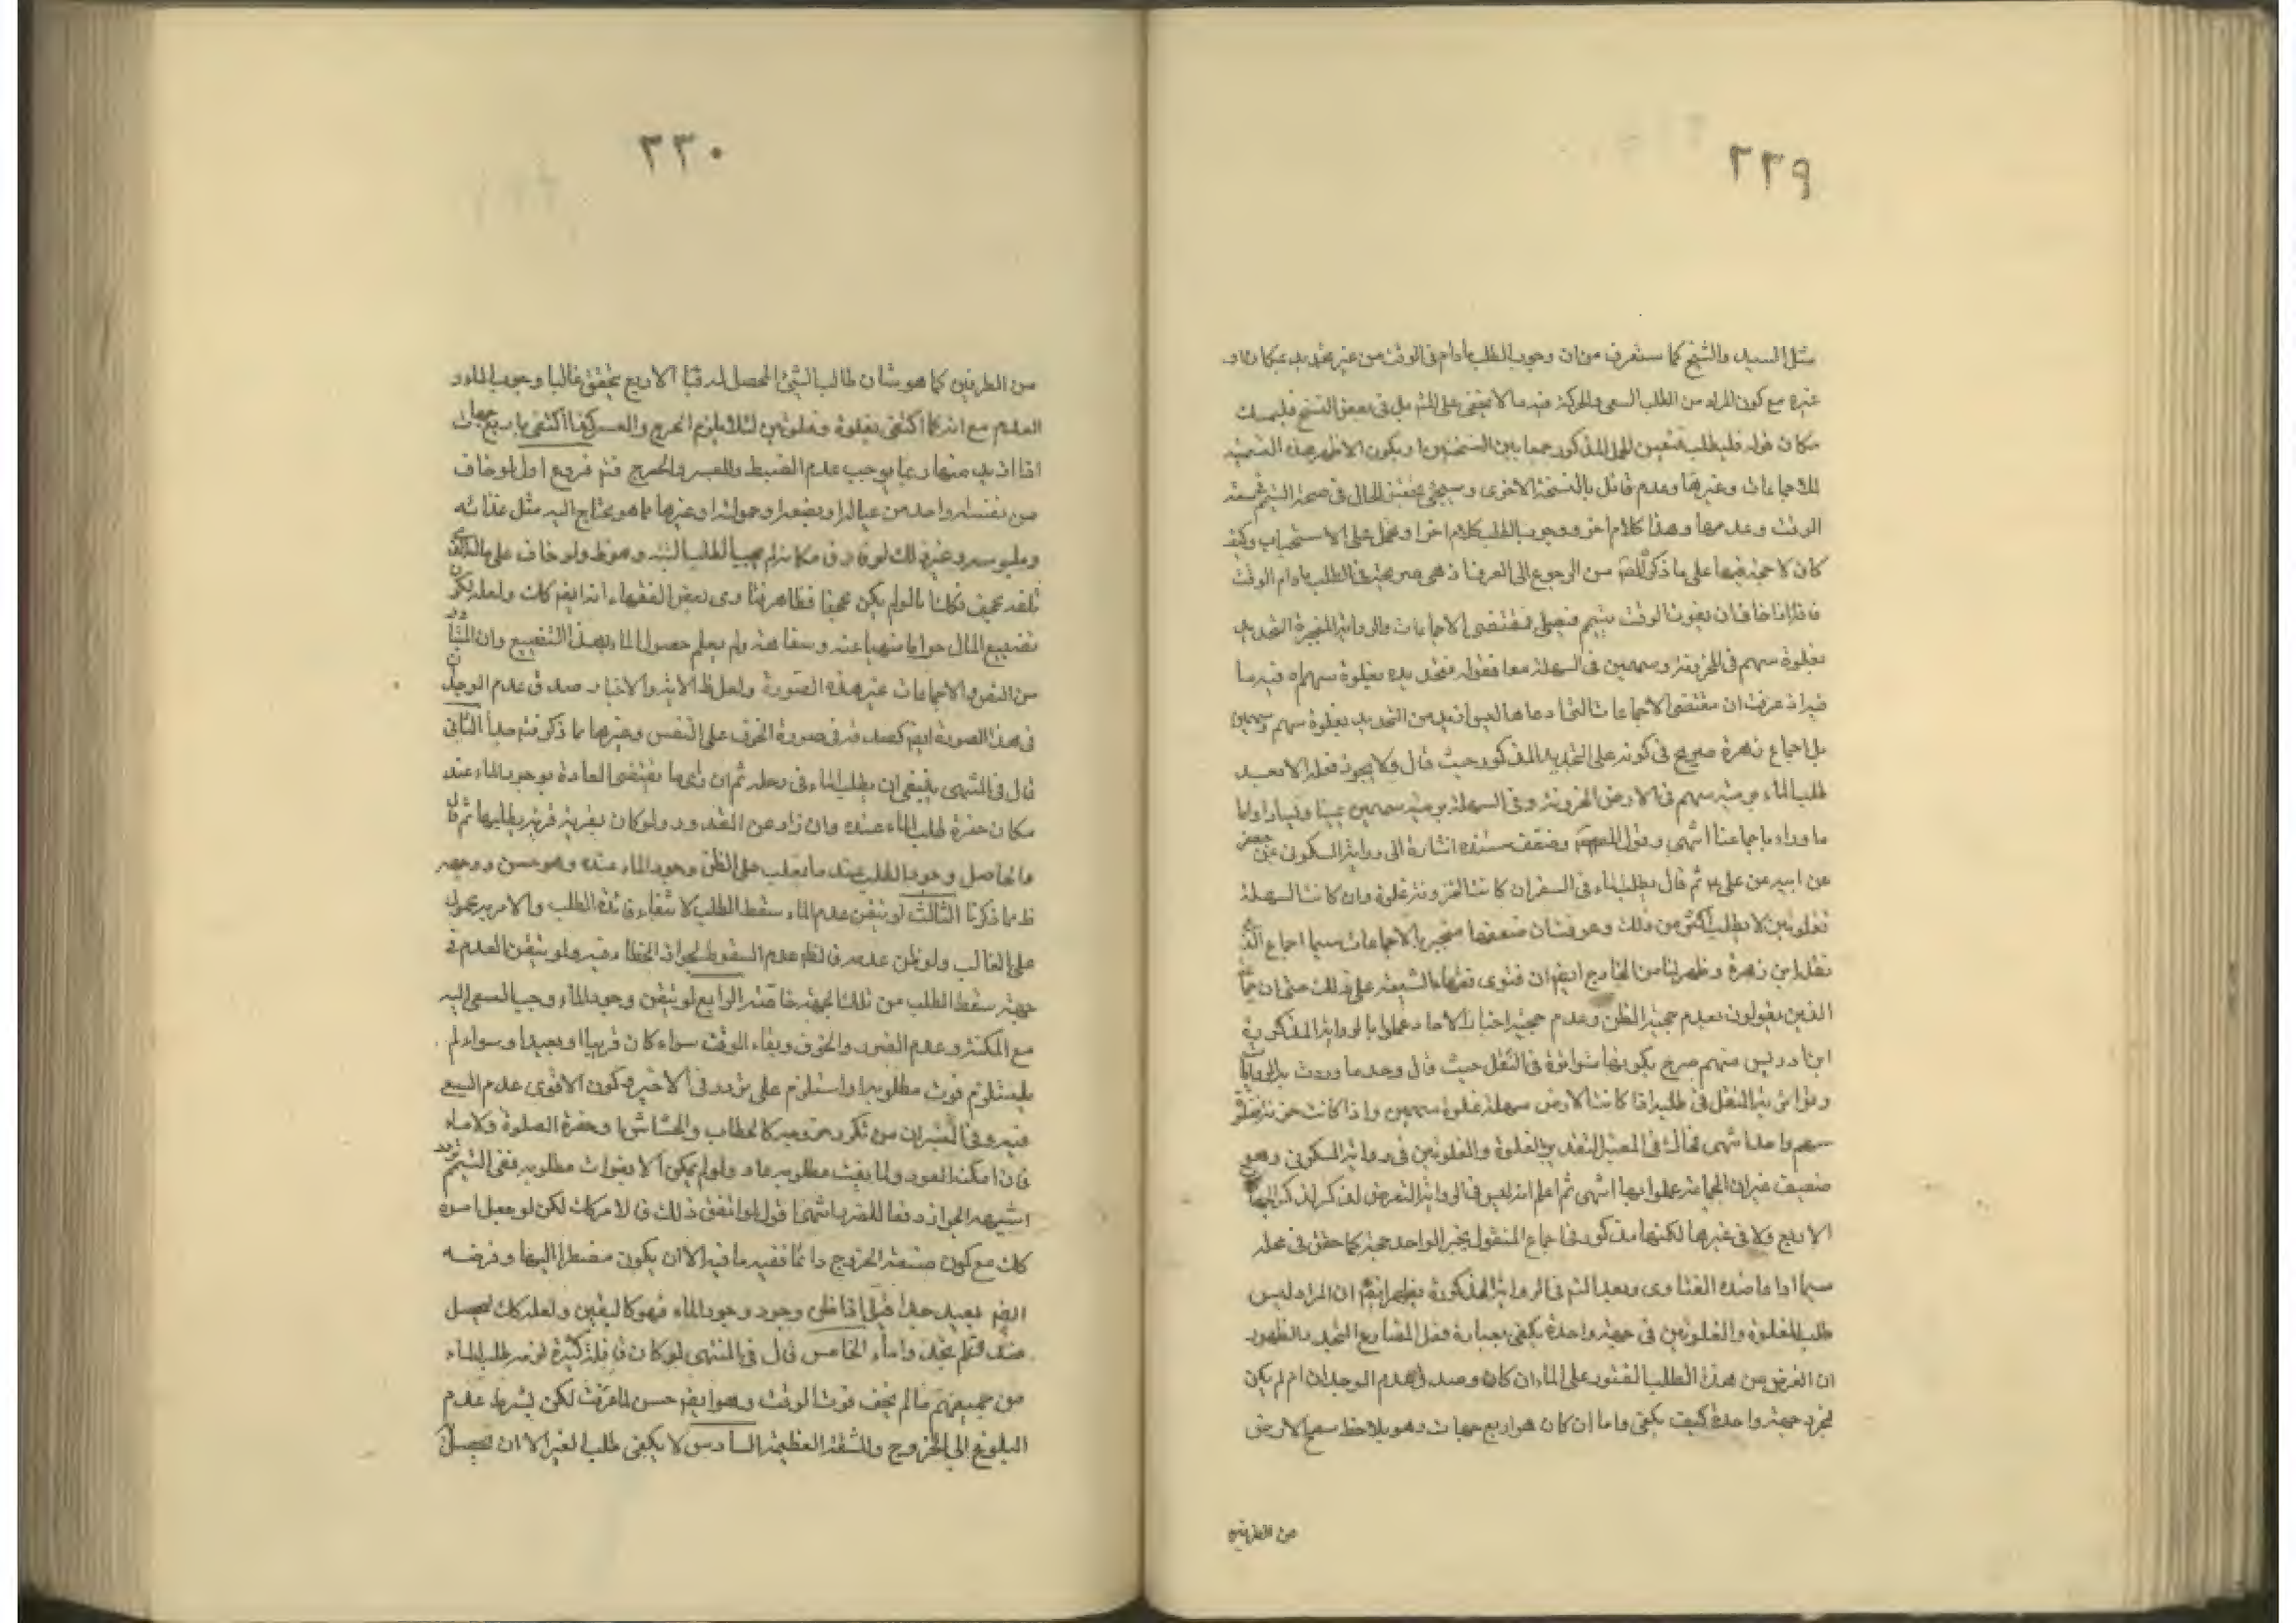 ٢٢٩
مثل السيد والشيخ كما ستعرف من ان وجوب الطلب مادام فى الوقت من غير تحديد بمكان او
غيره مع كون المراد من الطلب السعى والحركة فيه ما لا يخفى على المتامل فى بعض النسخ فليمسك
مكان قوله فليطلب فتعين الحمل المذكور جمعا بين النسختين او يكون الاظهر هذه النسخة
للاجماعات وغيرها وعدم قائل بالنسخة الاخرى وسيجئ تحقيق الحال فى صحة التيمم بسعة
الوقت وعدمها وهذا كلام اخر ووجوب الطلب كلام اخر او تحمل على الاستحباب وكيف
كان لا حجة فيها على ما ذكر المص من الرجوع الى العرف اذ هى صريحة فى الطلب مادام الوقت
فاذا خاف ان يفوت الوقت يتيمم فيصلى فمقتضى الاجماعات والرواية المنجبرة التحديد
بغلوة سهم فى الحزونة وسهمين فى السهلة معا فقوله فتحديده بغلوة سهم اه فيه ما
فيه اذ عرفت ان مقتضى الاجماعات التى ادعاها ليس ازيد من التحديد بغلوة سهم وسهمين
بل اجماع زهرة صريح فى كونه على التحديد المذكور حيث قال ولا يجوز فعله الا بعد
طلب الماء رمية سهم فى الارض الحزونة وفى السهلة رمية سهمين يمينا ويسارا واماما
وراء باجماعنا انتهى وقول المص وضعف سنده اشارة الى رواية السكونى عن جعفر
عن ابيه عن على ع قال يطلب الماء فى السفر ان كانت الحزونة فغلوة وان كانت السهلة
فغلوتين لا يطلب اكثر من ذلك وعرفت ان ضعفها منجبر بالاجماعات سيما اجماع الذى
نقله ابن زهرة وظهر لنا من الخارج ايضا ان فتوى فقهاء الشيعة على ذلك حتى ان
الذين يقولون بعدم حجية الظن وعدم حجية اخبار الاحاد عملوا بالرواية المذكورة
ابن ادريس منهم صرح بكونها متواترة فى النقل حيث قال وحد ما وردت به الروايات
وتواتر به النقل فى طلبه اذا كانت الارض سهلة غلوة سهمين واذا كانت حزنة فغلوة
سهم واحد انتهى وقال فى المعتبر التقدير بالغلوة والغلوتين فى رواية السكونى وهو
ضعيف غير ان الجماعة عملوا بها انتهى ثم اعلم انه ليس فى الرواية التعرض لذكر الجهات
الاربع ولا فى غيرها لكنها مذكورة فى اجماع المنقول بخبر الواحد حجة كما حقق فى محله
سيما اذا عاضده الفتاوى وبعد التامل فى الرواية المذكورة يظهر ايضا ان المراد ليس
طلب الغلوة والغلوتين فى جهة واحدة يكفى بعبارة فعل المضارع
ان الغرض من هذا الطلب العثور على الماء ان كان وصدق عدم الوجدان ان لم يكن
فمجرد جهة واحدة كيف يكفى واما ان كان هو اربع جهات وهو يلاحظ سمع الارض
من الطرفين
٢٣٠
من الطرفين كما هو شان طالب الشئ المحصل له رقبا الاربع يتحقق غالبا وجوب الماء و
العدم مع انه كما اكتفى بغلوة وغلوتين لئلا يلزم الحرج والعسر كذا اكتفى باربع جهات
اذ ازيد منها ربما يوجب عدم الضبط والعسر والحرج فثم فروع اول لو خاف
من نفسه واحد من عياله او بضعه او حمولته او غيرها مما هو يحتاج اليه مثل غذائه
وملبوسه وغير ذلك لو فارق مكانه لم يجب الطلب البتة وهو ظ ولو خاف على مال
تلفه مجحف فكك اما لو لم يكن مجحفا فظاهر فتاوى بعض الفقهاء انه ايضا كك ولعله لكن
تضييع المال حراما منهيا عنه وسفاهة ولم يعلم حصول الماء بهذا التضييع وان المتبادر
من النص والاجماعات غير هذه الصورة ولعل ظ الاية والاخبار صدق عدم الوجدان
فى هذا الصورة ايضا كصدقه فى صورة الخوف على النفس وغيرها مما ذكر فتامل جدا الثانى
قال فى المنتهى ينبغى ان يطلب الماء فى رحله ثم ان راى ما يقتضى العادة بوجود الماء عنده
مكان خضرة طلب الماء عنده وان زاد عن المقدر ولو كان بقربه قرية يطلبها ثم قال
والحاصل وجوب الطلب عند ما يغلب على الظن وجود الماء عنده وهو حسن ووجهه
ظ مما ذكرنا الثالث لو تيقن عدم الماء سقط الطلب لانتفاء فائدة الطلب والامر به محمول
على الغالب ولو ظن عدمه فالظ عدم السقوط لجواز الخطاء فيه ولو تيقن العدم فى
جهة سقط الطلب من تلك الجهة خاصة الرابع لو تيقن وجود الماء وجب السعى اليه
مع المكنة وعدم الضرر والخوف وبقاء الوقت سواء كان قريبا او بعيدا وسواء لم
يستلزم فوت مطلوبه او استلزم على تردد فى الاخير وكون الاقوى عدم السعى
فيه وفى العشران من تكررت كالحطاب والحشاش او حضرة الصلوة ولا ماء
فان امكنه العود ولما يفت مطلوبه عاد ولو لم يمكن الا بفوات مطلوبه ففى التيمم تردد
اشبهه الجواز دفعا للضرر انتهى اقول لو اتفق ذلك فالامر كك لكن لو يجعل امره
كك مع كون صنعته الخروج دائما ففيه ما فيه الا ان يكون مضطرا اليها وفرضه
ايضا بعيد جدا قيل اذا ظن وجود وجود الماء فهو كاليقين ولعله كك لتحصيل
صدق فلم تجدوا ماء الخامس قال فى المنتهى لو كان فى قافلة كثيرة لزمه طلب الماء
من جميعهم ما لم يخف فوت الوقت وهو ايضا حسن لما عرفت لكن بشرط عدم
البلوغ الى الحروج والمشقة العظيمة السادس لا يكفى طلب الغير الا ان يحصل